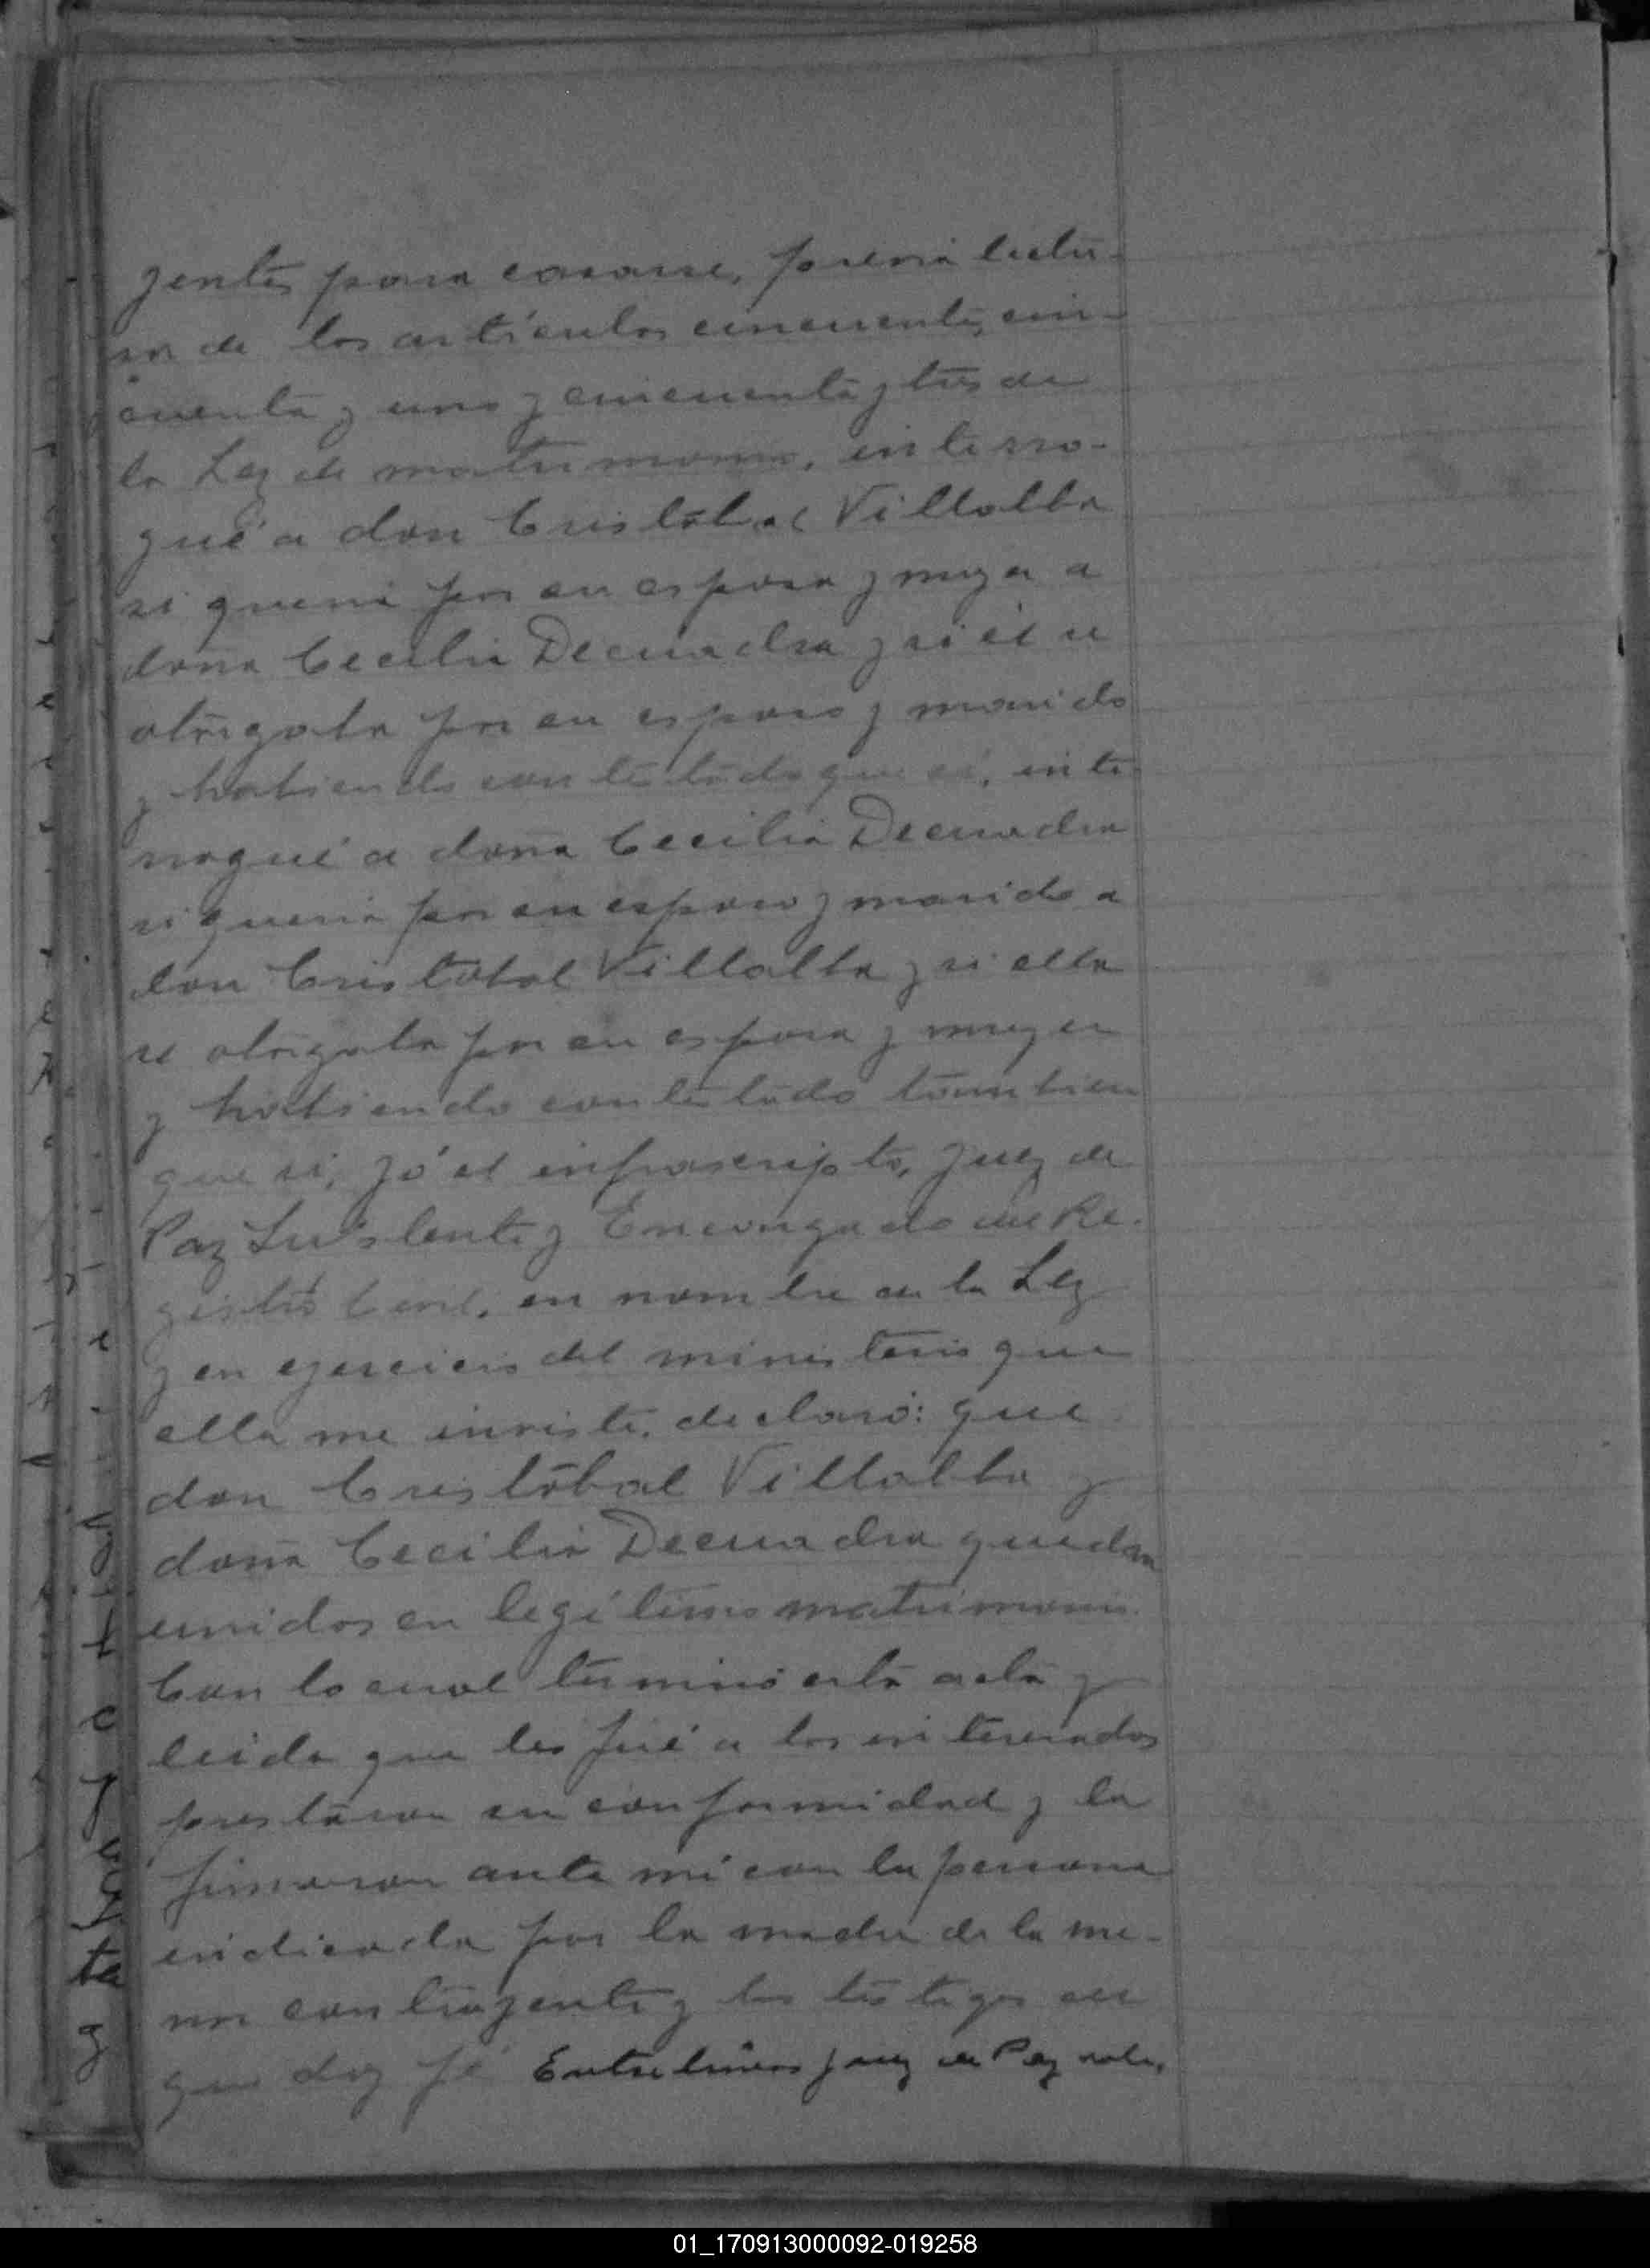 gentes para casarse, previa lectu-
ra de los artículos cincuenta, cin-
cuenta y uno y cincuenta y tres de
la Ley de matrimonio, interro-
gué a don Cristóbal Villalba
si queria por su esposa y muger a
doña Cecilia Decuadra y si él se
obligaba por su esposo y marido
y habiendo contestado que si, inte-
rrogué a doña Cecilia Decuadra
si queria por su esposo y marido a
don Cristobal Villalba y si ella
se obligaba por su esposa y muger
y habiendo contestado tambien
que si, yó el infrascripto, Juez de
Paz Sustente y Encargado del Re-
gistro Civil, en nombre de la Ley
y en ejercicio del ministerio que
ella me inviste, declaró: que
don Cristóbal Villalba y
doña Cecilia Decuadra quedan
unidos en legítimo matrimonio.
Con lo cual terminó esta acta y
leida que les fué a los interesados
prestaron su conformidad y la
firmaron ante mi con la persona
indicada por la madre de la me-
nor contrayente y los testigos de
que doy fé Entre lineas Juez de Paz vale.
01_170913000092-019258